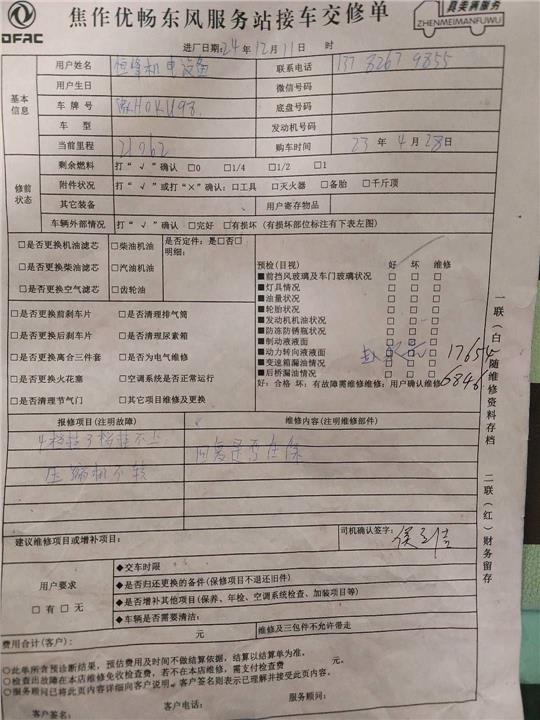 DFAC
焦作优畅东风服务站接车交修单
真美满服务
ZHENMEIMANFUWU
进厂日期:24年12月11日 时
用户姓名 恒峰机电设备 联系电话
基本信息
用户生日 微信号码
车牌号 底盘号码
车 型 发动机号码
当前里程 购车时间 23年4月28日
修前状态
剩余燃料 打“√”确认 □0 □1/4 □1/2 □1
附件状况 打“√”或打“×”确认: □工具 □灭火器 □备胎 □千斤顶
其它装备 用户寄存物品
车辆外部情况 打“√”确认 □完好 □有损坏 (有损坏部位标注有下表左图)
□是否更换机油滤芯 □柴油机油 是否定件: 是□否□
明细:
□是否更换柴油滤芯 □汽油机油
□是否更换空气滤芯 □齿轮油
预检(目视) 好 坏 维修
■前挡风玻璃及车门玻璃状况 □ □ □
■灯具情况 □ □ □
■油量状况 □ □ □
■轮胎状况 □ □ □
■发动机机油状况 □ □ □
■防冻防锈瓶状况 □ □ □
■制动液液面 □ □ □
■动力转向液液面 □ □ □
■变速箱漏油情况 □ □ □
■后桥漏油情况 □ □ □
好: 合格 坏: 有故障需维修维修: 用户确认维修
□是否更换前刹车片 □是否清理排气筒
□是否更换后刹车片 □是否清理尿素箱
□是否更换离合三件套 □是否为电气维修
□是否更换火花塞 □空调系统是否正常运行
□是否清理节气门 □其它项目维修及更换
报修项目(注明故障) 维修内容(注明维修部件)
4档挂3档挂不上
回复是否在保
压缩机不转
建议维修项目或增补项目: 司机确认签字:
用户要求
□有 □无
◆交车时限
◆是否归还更换的备件(保修项目不退还旧件)
◆是否增补其他项目(保养、年检、空调系统检查、加装项目等)
◆车辆是否需要清洁:
费用合计(客户): 元 维修及三包件不允许带走
○此单所含预诊断结果, 预估费用及时间不做结算依据, 结算以结算单为准。
○检查出故障在本店维修免收检查费, 若不在本店维修, 需支付检查费 元。
○服务顾问已将此页内容详细向客户说明。客户签名则表示已理解并接受此页内容。
客户签名: 客户电话: 服务顾问:
一联(白)随维修资料存档
二联(红)财务留存